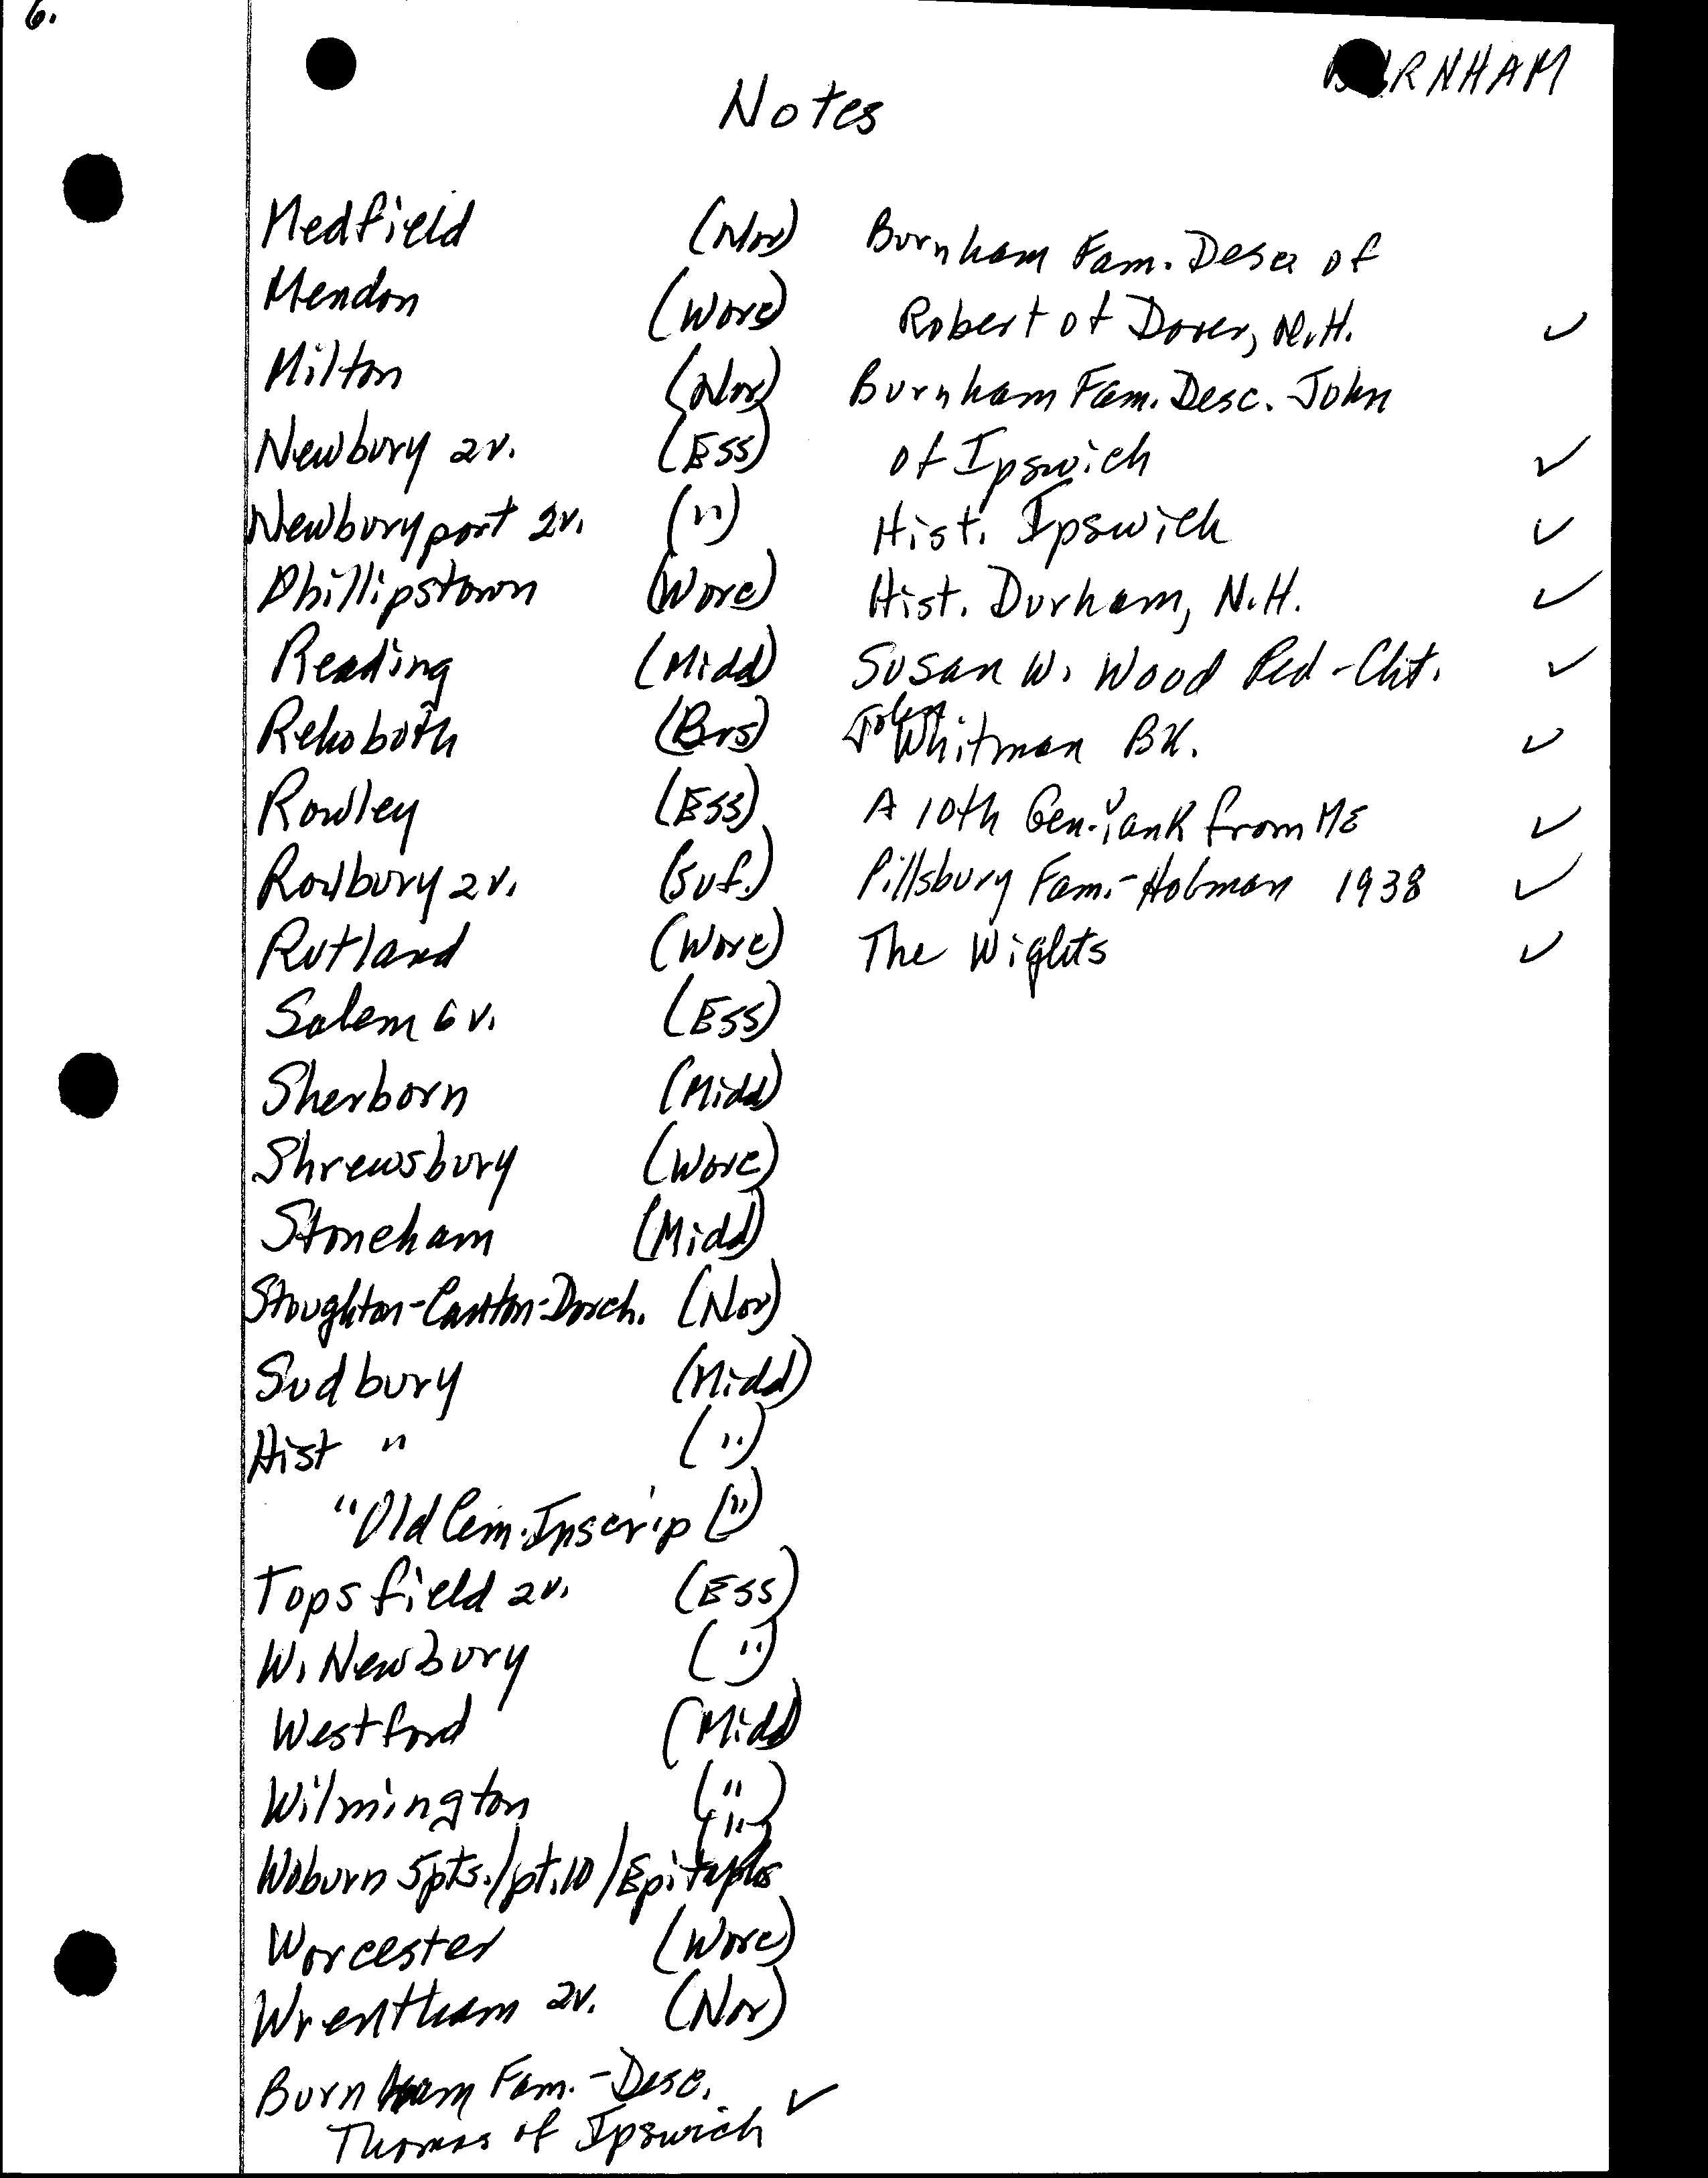 6.
BURNHAM
Notes
Medfield (Nor)
Mendon (Worc)
Milton (Nor)
Newbury 2v. (Ess)
Newburyport 2v. (")
Phillipstown (Worc)
Reading (Midd)
Rehoboth (Brs)
Rowley (Ess)
Roxbury 2v. (Suf.)
Rutland (Worc)
Salem 6v. (Ess)
Sherborn (Midd)
Shrewsbury (Worc)
Stoneham (Midd)
Stoughton-Canton-Dorch. (Nor)
Sudbury (Midd)
Hist " (")
"Old Cem. Inscrip (")
Topsfield 2v. (Ess)
W. Newbury (")
Westford (Midd)
Wilmington (")
(")
Woburn 5pts./pt.10/Epitaphs
Worcester (Worc)
Wrentham 2v. (Nor)
Burnham Fam.-Desc.
Thomas of Ipswich ✓
Burnham Fam. Desc of
Robert of Dover, N.H. ✓
Burnham Fam. Desc. John
of Ipswich ✓
Hist. Ipswich ✓
Hist. Durham, N.H. ✓
Susan W. Wood Ped-Cht. ✓
John Whitman BK. ✓
A 10th Gen. Yank from ME ✓
Pillsbury Fam.-Holman 1938 ✓
The Wights ✓